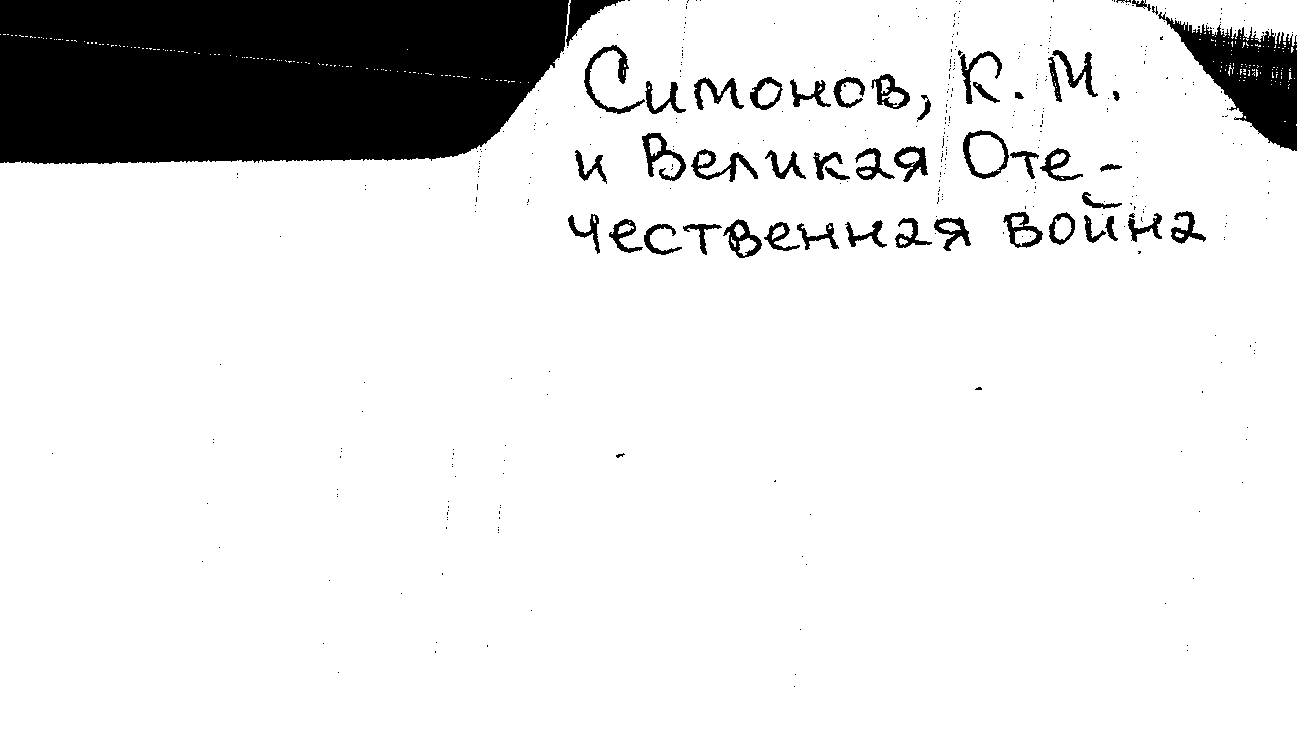 Симонов, К. М.
и Великая Оте-
чественная война